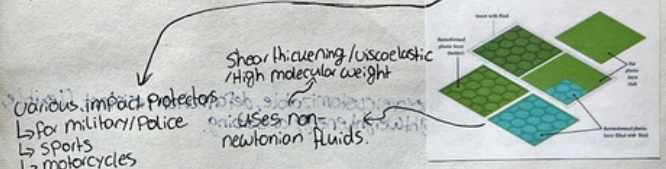 shear thickening/viscoelastic
/High molecular weight
various impact protectors
↳ for military/Police
↳ sports
↳ motorcycles
uses non-
newtonian fluids.
insert with fluid
thermoformed
plastic layer
(bottom)
flat
plastic
layer
thermoformed plastic
layer filled with fluid